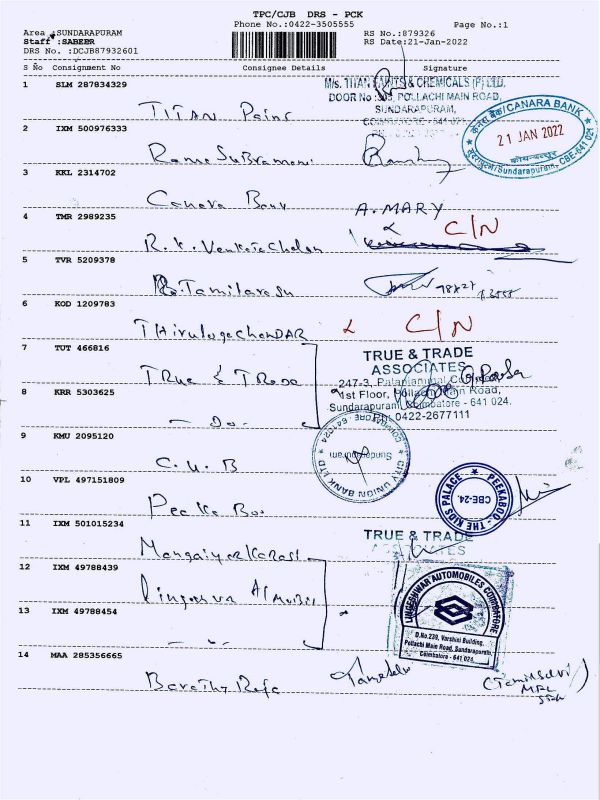 TPC/CJB DRS - PCK
Phone No.:0422-3505555
Page No.:1
Area :SUNDARAPURAM
Staff :SABEER
DRS No. :DCJB87932601
RS No.:879326
RS Date:21-Jan-2022
S No Consignment No Consignee Details Signature
1 SLM 287834329
TITAN Paint
M/s. TITAN PAINTS & CHEMICALS (P) LTD.
DOOR No : 303, POLLACHI MAIN ROAD,
SUNDARAPURAM,
COIMBATORE - 641 024
2 IXM 500976333
Rama Subramani
केनरा बैंक/CANARA BANK
21 JAN 2022
Sundarapuram, CBE-641 024
3 KKL 2314702
Canara Bank
A. MARY
4 TMR 2989235
R.K. Venkatachalam
C/N
5 TVR 5209378
G. Tamilarasu
6 KOD 1209783
Thirulogachandar
C/N
7 TUT 466816
True & Trade
TRUE & TRADE
ASSOCIATES
247-3, Palaniammal Complex
1st Floor, Pollachi Main Road,
Sundarapuram, Coimbatore - 641 024.
PH: 0422-2677111
8 KRR 5303625
- Do -
9 KMU 2095120
C.U.B
CITY UNION BANK LTD
Sundarapuram
COIMBATORE - 641024
10 VPL 497151809
Peeka Boo
PEEKABOO - THE KIDS PALACE
CBE-24.
11 IXM 501015234
Mangaiyarkarasi
TRUE & TRADE
ASSOCIATES
12 IXM 49788439
Lingeswar
LINGESHWAR AUTOMOBILES COIMBATORE
D.No.239, Varshini Building,
Pollachi Main Road, Sundarapuram,
Coimbatore - 641 024
13 IXM 49788454
14 MAA 285356665
Barathy Raja
(Tamilselvi)